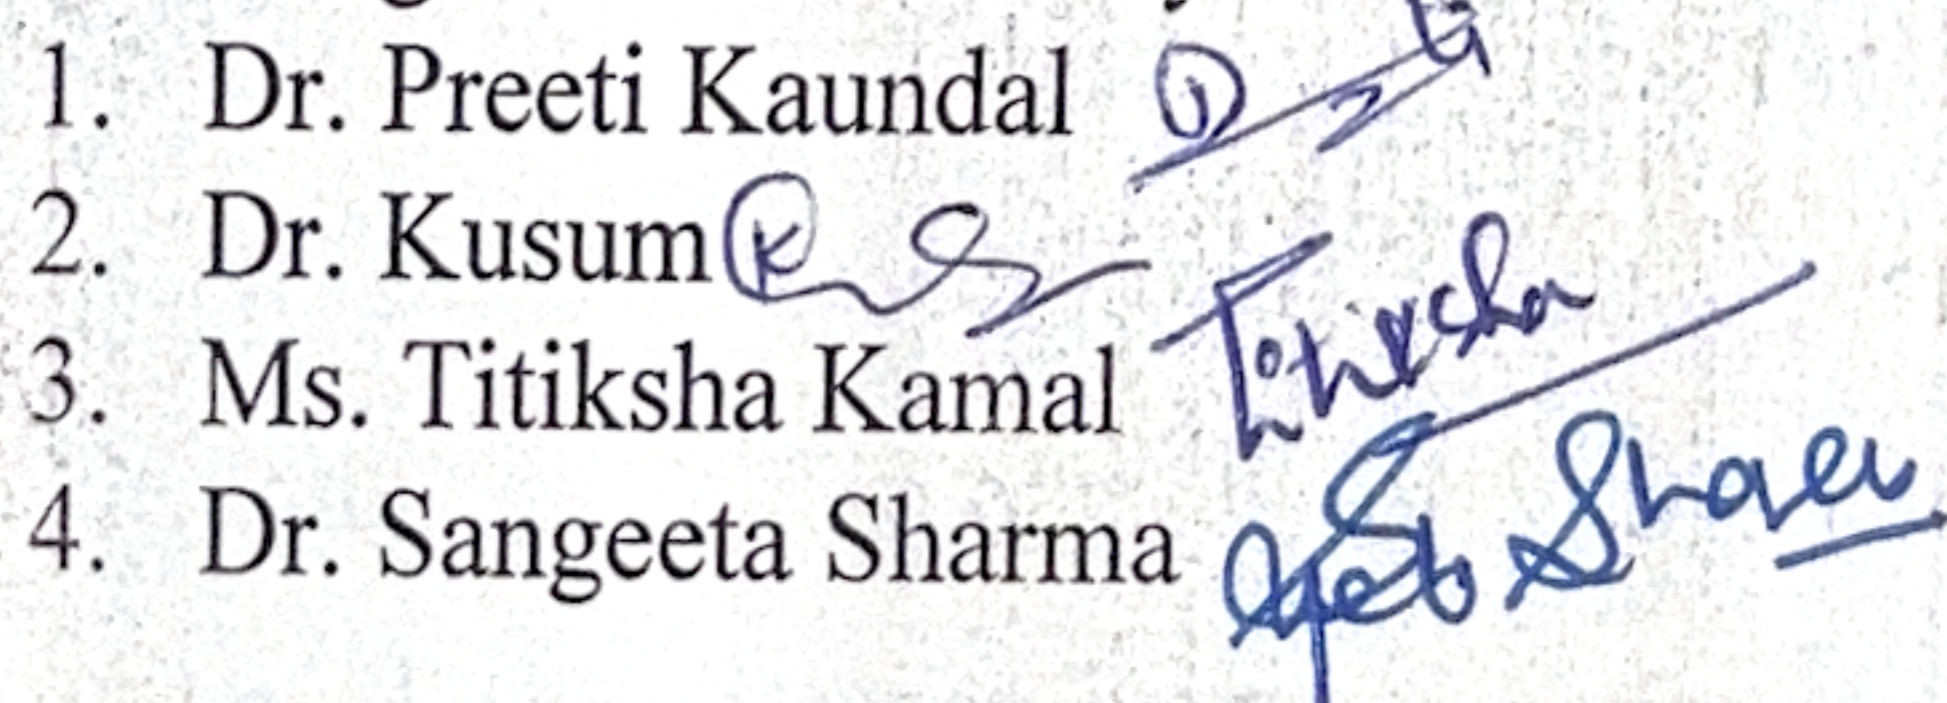 1. Dr. Preeti Kaundal
2. Dr. Kusum
3. Ms. Titiksha Kamal Titiksha
4. Dr. Sangeeta Sharma Sharma